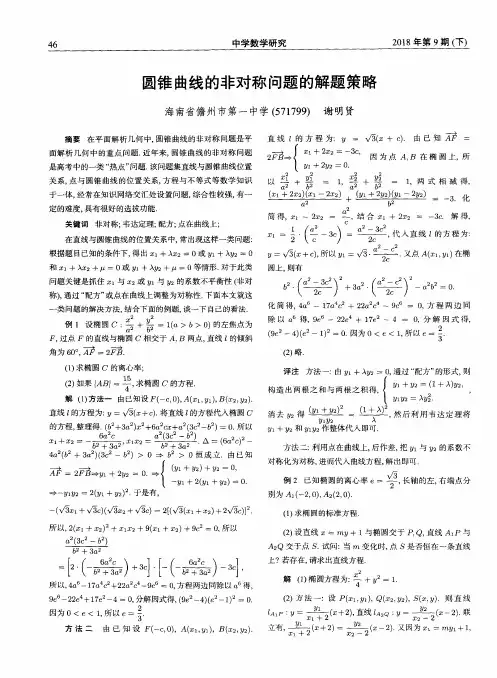 46
中学数学研究
2018 年第 9 期(下)
圆锥曲线的非对称问题的解题策略
海南省儋州市第一中学(571799) 谢明贤
摘要 在平面解析几何中,圆锥曲线的非对称问题是平
面解析几何中的重点问题. 近年来, 圆锥曲线的非对称问题
是高考中的一类“热点”问题. 该问题集直线与圆锥曲线位置
关系, 点与圆锥曲线的位置关系, 方程与不等式等数学知识
于一体, 经常在知识网络交汇处设置问题, 综合性较强, 有一
定的难度, 具有很好的选拔功能.
关键词 非对称; 韦达定理; 配方; 点在曲线上;
在直线与圆锥曲线的位置关系中, 常出现这样一类问题:
根据题目已知的条件下, 得出 x₁ + λx₂ = 0 或 y₁ + λy₂ = 0
和 x₁ + λx₂ + μ = 0 或 y₁ + λy₂ + μ = 0 等情形. 对于此类
问题关键是抓住 x₁ 与 x₂ 或 y₁ 与 y₂ 的系数不平衡性 (非对
称), 通过“配方”或点在曲线上调整为对称性. 下面本文就这
一类问题的解决方法, 结合下面的例题, 谈一下自己的看法.
例 1 设椭圆 C : x²/a² + y²/b² = 1(a > b > 0) 的左焦点为
F, 过点 F 的直线与椭圆 C 相交于 A, B 两点, 直线 l 的倾斜
角为 60°, AF = 2FB.
(1) 求椭圆 C 的离心率;
(2) 如果 |AB| = 15/4, 求椭圆 C 的方程.
解 (1)方法一 由已知设 F(−c,0), A(x₁,y₁), B(x₂,y₂).
直线 l 的方程为: y = √3(x+c). 将直线 l 的方程代入椭圆 C
的方程, 整理得. (b²+3a²)x²+6a²cx+a²(3c²−b²) = 0. 所以
x₁+x₂ = −6a²c/(b²+3a²), x₁x₂ = a²(3c²−b²)/(b²+3a²), Δ = (6a²c)² −
4a²(b² + 3a²)(3c² − b²) > 0 ⇒ b² > 0 恒成立. 由已知
AF = 2FB⇒y₁ + 2y₂ = 0. ⇒ { (y₁+y₂) + y₂ = 0, −y₁ + 2(y₁+y₂) = 0.
⇒−y₁y₂ = 2(y₁ + y₂)². 于是有,
−(√3x₁+√3c)(√3x₂+√3c) = 2[(√3(x₁+x₂)+2√3c)]².
所以, 2(x₁ + x₂)² + x₁x₂ + 9(x₁ + x₂) + 9c² = 0, 所以
a²(3c² − b²)/(b² + 3a²)
= [2·(−6a²c/(b²+3a²)) + 3c]·[−(−6a²c/(b²+3a²)) − 3c],
所以, 4a⁶−17a⁴c²+22a²c⁴−9c⁶ = 0, 方程两边同除以 a⁶ 得,
9e⁶−22e⁴+17e²−4 = 0, 分解因式得, (9e²−4)(e²−1)² = 0.
因为 0 < e < 1, 所以 e = 2/3.
方法二 由已知设 F(−c,0), A(x₁,y₁), B(x₂,y₂).
直线 l 的方程为: y = √3(x + c). 由已知 AF =
2FB⇒ { x₁ + 2x₂ = −3c, y₁ + 2y₂ = 0. 因为点 A, B 在椭圆上, 所
以 x₁²/a² + y₁²/b² = 1, x₂²/a² + y₂²/b² = 1, 两式相减得,
(x₁+2x₂)(x₁−2x₂)/a² + (y₁+2y₂)(y₁−2y₂)/b² = −3. 化
简得, x₁ − 2x₂ = a²/c, 结合 x₁ + 2x₂ = −3c. 解得,
x₁ = 1/2·(a²/c − 3c) = (a²−3c²)/2c, 代入直线 l 的方程为:
y = √3(x+c), 所以 y₁ = √3·(a²−c²)/2c. 又点 A(x₁,y₁) 在椭
圆上, 则有
b²·((a²−3c²)/2c)² + 3a²·((a²−c²)/2c)² − a²b² = 0.
化简得, 4a⁶ − 17a⁴c² + 22a²c⁴ − 9c⁶ = 0, 方程两边同
除以 a⁶ 得, 9e⁶ − 22e⁴ + 17e² − 4 = 0, 分解因式得,
(9e²−4)(e²−1)² = 0. 因为 0 < e < 1, 所以 e = 2/3.
(2) 略.
评注 方法一: 由 y₁ + λy₂ = 0, 通过“配方”的形式, 则
构造出两根之和与两根之积得, { y₁ + y₂ = (1+λ)y₂, y₁y₂ = λy₂². ,
消去 y₂ 得 (y₁+y₂)²/y₁y₂ = (1+λ)²/λ, 然后利用韦达定理将
y₁ + y₂ 和 y₁y₂ 作整体代入即可.
方法二: 利用点在曲线上, 后作差, 把 y₁ 与 y₂ 的系数不
对称化为对称, 进而代入曲线方程, 解出即可.
例 2 已知椭圆的离心率 e = √3/2, 长轴的左, 右端点分
别为 A₁(−2,0), A₂(2,0).
(1) 求椭圆的标准方程.
(2) 设直线 x = my + 1 与椭圆交于 P, Q, 直线 A₁P 与
A₂Q 交于点 S. 试问: 当 m 变化时, 点 S 是否恒在一条直线
上? 若存在, 请求出直线方程.
解 (1) 椭圆方程为: x²/4 + y² = 1.
(2) 方法一: 设 P(x₁,y₁), Q(x₂,y₂), S(x,y). 则直线
l_A₁P : y = y₁/(x₁+2)(x+2), 直线 l_A₂Q : y = y₂/(x₂−2)(x−2). 联
立有, y₁/(x₁+2)(x+2) = y₂/(x₂−2)(x−2). 又因为 x₁ = my₁+1,